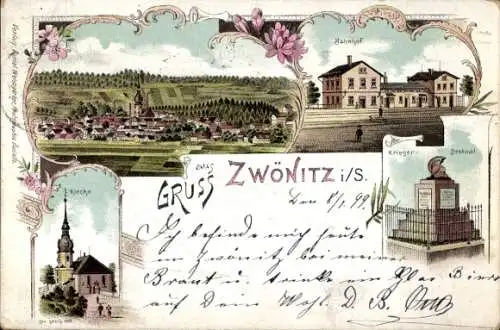 Bahnhof
Krieger-Denkmal
Kirche
GRUSS aus
ZWÖNITZ i/S.
Den 8/1. 99.
Ich befinde mich heute
in Zwönitz bei meiner
Braut u. trinke ein Glas Bier
auf Dein Wohl. D. B.